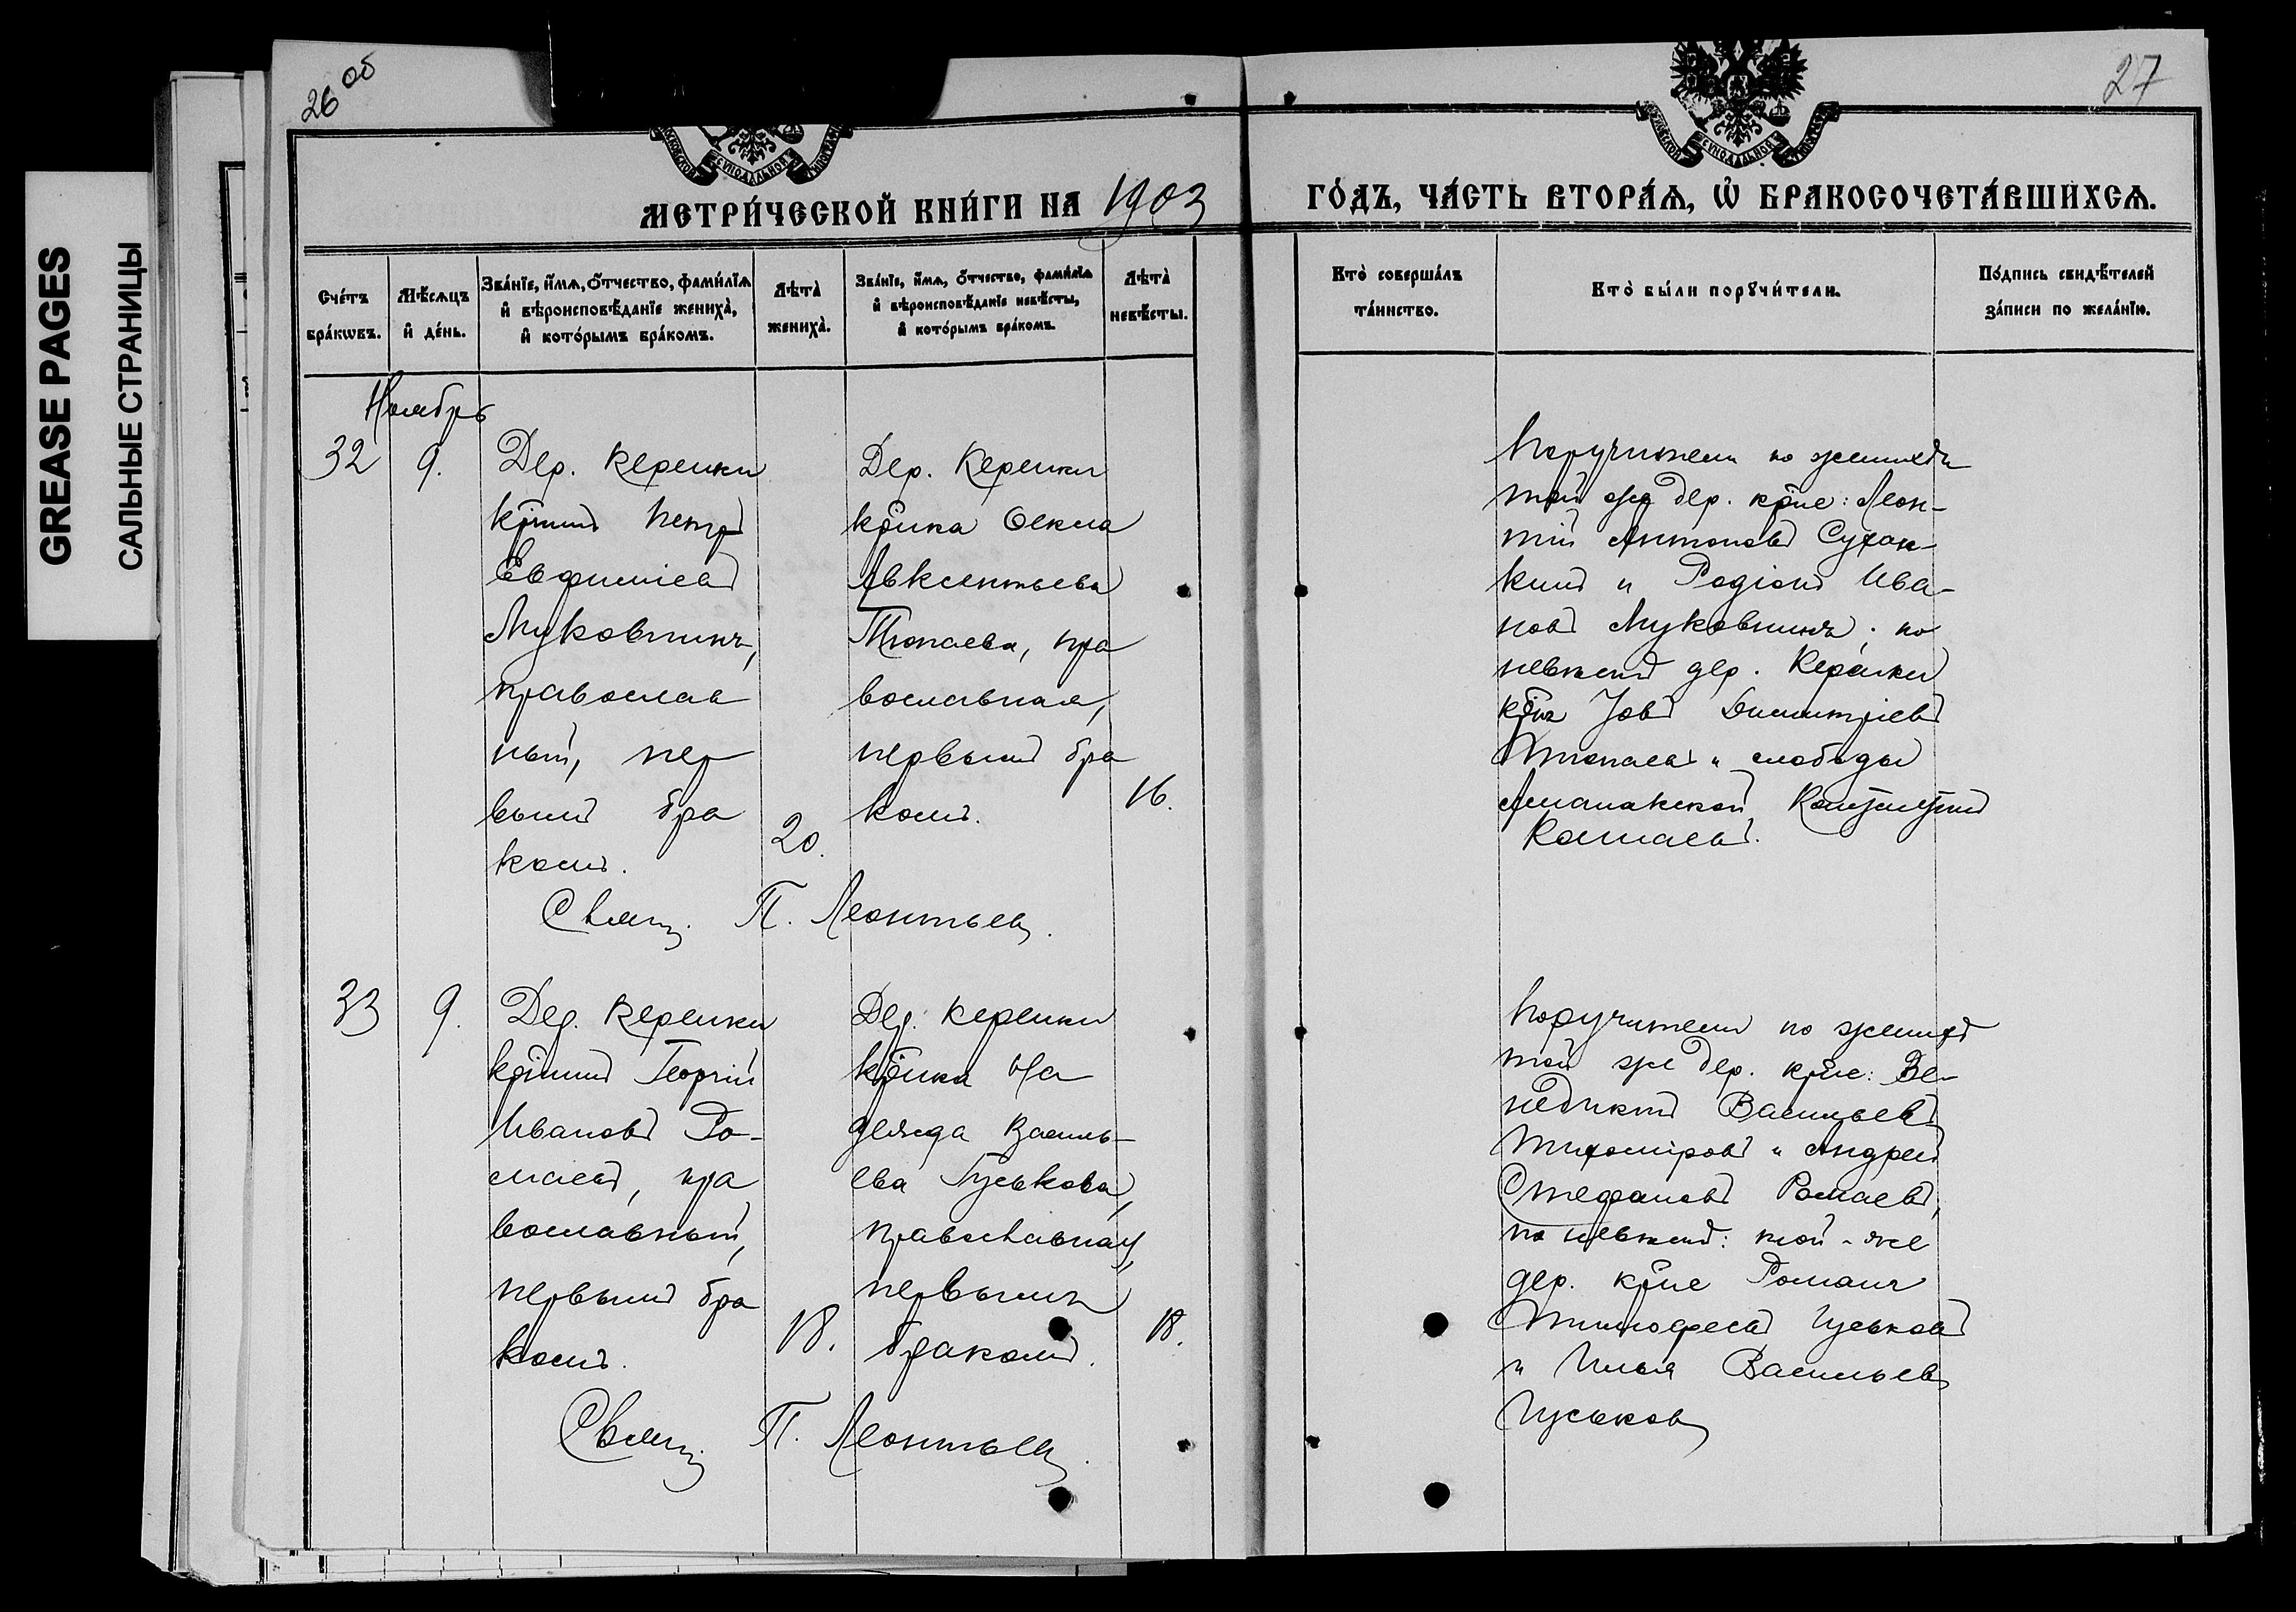 GREASE PAGES
САЛЬНЫЕ СТРАНИЦЫ
26 об
27
МЕТРИ́ЧЕСКОЙ КНИ́ГИ НА 1903
ГО́ДЪ, ЧА́СТЬ ВТОРА́Ѧ, Ѽ БРАКОСОЧЕТА́ВШИХСѦ.
Сче́тъ бра́кѡвъ.
Мѣ́сѧцъ и҆ де́нь.
Зва́нїе, и҆́мѧ, ѻ҆́тчество, фами́лїѧ и҆ вѣроисповѣ́данїе жениха̀, и҆ кото́рымъ бра́комъ.
Лѣта̀ жениха̀.
Зва́нїе, и҆́мѧ, ѻ҆́тчество, фами́лїѧ и҆ вѣроисповѣ́данїе невѣ́сты, и҆ кото́рымъ бра́комъ.
Лѣта̀ невѣ́сты.
Кто̀ соверша́лъ та́инство.
Кто̀ бы́ли порꙋчи́тели.
По́дпись свидѣ́телей за́писи по жела́нїю.
Ноябрь
32
9.
Дер. Керенки
кр-нинъ Петръ
Евфиміевъ
Муковнинъ,
православ
ный, пер
вымъ бра
комъ.
20.
Дер. Керенки
кр-нка Фекла
Авксентьева
Тюпаева, пра
вославная,
первымъ бра
комъ.
16.
Поручители по женихѣ
той же дер. кр-не: Леон-
тій Антоновъ
и Родіонъ Ива-
новъ Муковнинъ; по
невѣстѣ дер. Керенки
кр-нъ Іовъ Димитріевъ
Тюпаевъ и слободы
Свящ. П. Леонтьевъ.
33
9.
Дер. Керенки
кр-нинъ Георгій
Ивановъ Ро-
маевъ, пра
вославный,
первымъ бра
комъ.
18.
Дер. Керенки
кр-нка На
дежда Василь-
ева Гуськова,
православная,
первымъ
бракомъ.
18.
Поручители по женихѣ
той же дер. кр-не: Ве-
недиктъ Васильевъ
Тихоміровъ и Андрей
Стефановъ Ромаевъ,
по невѣстѣ: той-же
дер. кр-не Романъ
Тимофеевъ Гуськовъ
и Илья Васильевъ
Гуськовъ
Свящ. П. Леонтьевъ.